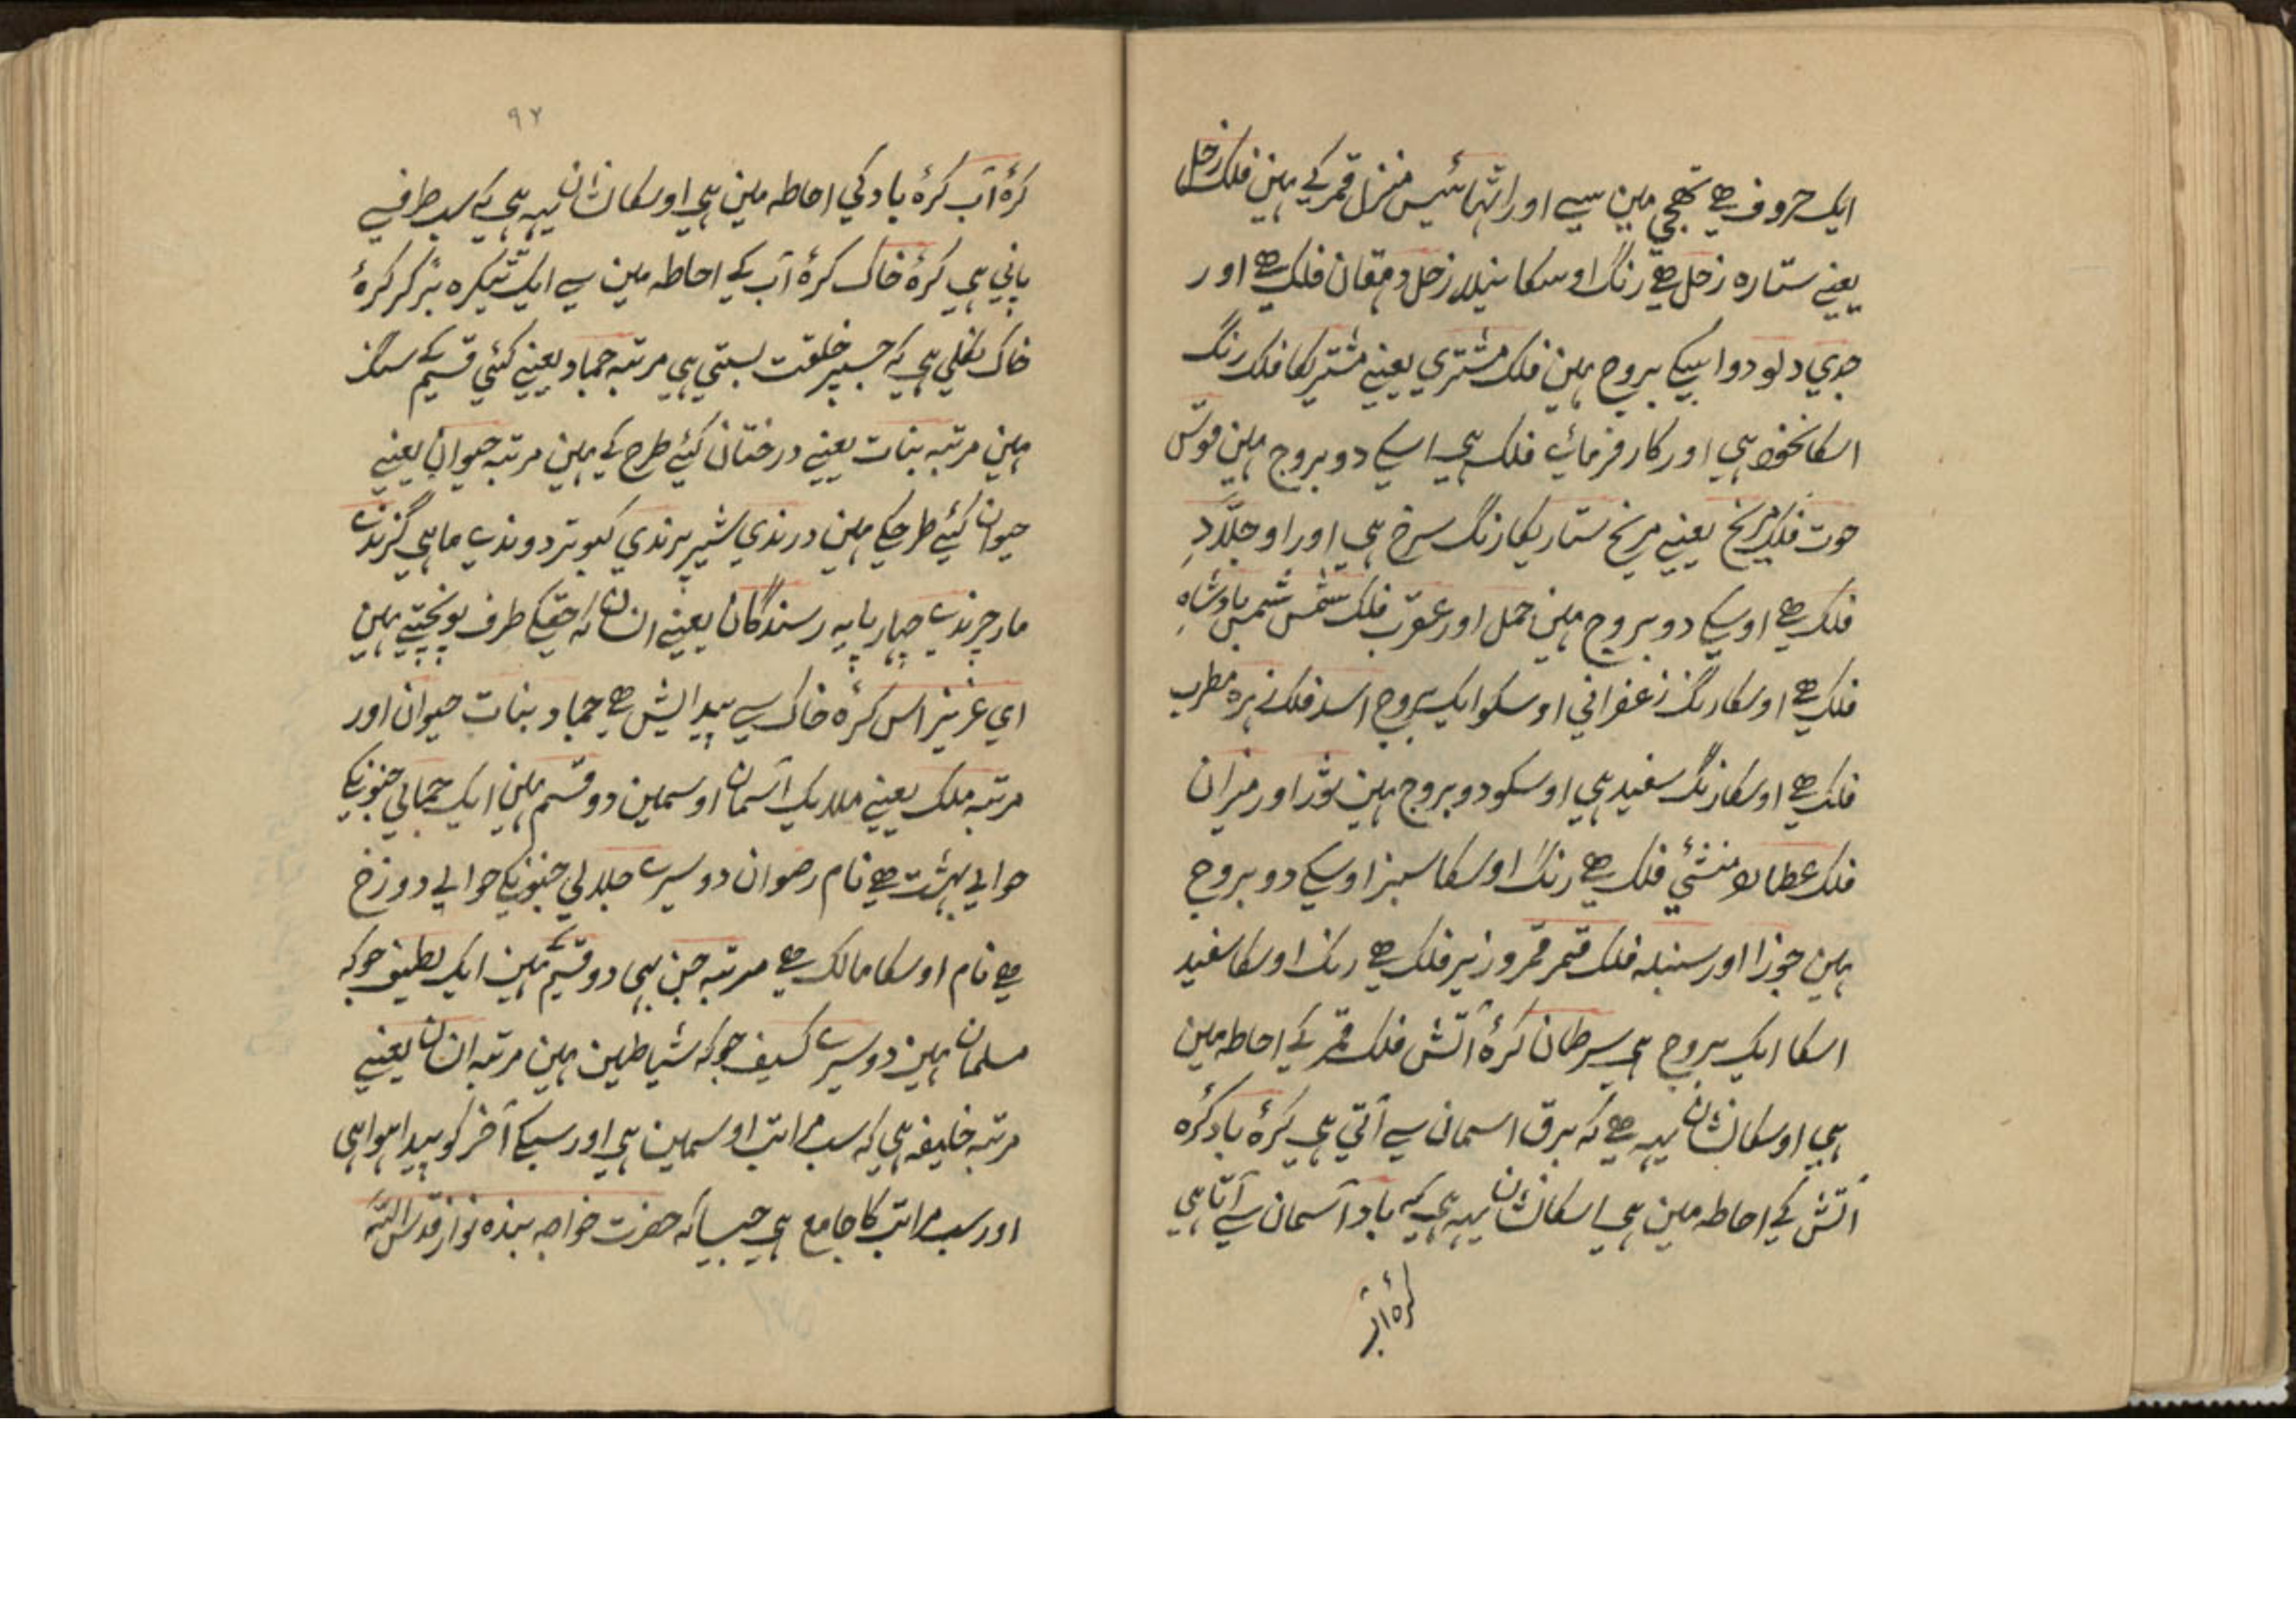 ایک حروف ہے تہجی مین سے اور اٹہائیس منزل قمر کے ہین فلک زحل
یعنے ستارہ زحل ہے رنگ اوسکا نیلا زحل دہقان فلک ہے اور
جدي دلو دو اسیکے بروج ہین فلک مشتري یعنے مشتریکا فلک رنگ
اسکا ہي اور کار فرمائے فلک ہي اسکے دو بروج ہین قوس
حوت فلک مریخ یعنے مریخ ستاریکا رنگ سرخ ہي اور او جلّاد
فلک ہے اوسکے دو بروج ہین حمل اور عقرب فلک شمس شمس بادشاہِ
فلک ہے اوسکا رنگ زعفراني اوسکو ایک بروج اسد فلک زہرہ مطرب
فلک ہے اوسکا رنگ سفید ہي اوسکو دو بروج ہین ثور اور میزان
فلک عطارد منشئي فلک ہے رنگ اوسکا سبز اوسکے دو بروج
ہین جوزا اور سنبلہ فلک قمر قمر وزیر فلک ہے رنگ اوسکا سفید
اسکا ایک بروج ہي سرطان کرۂ آتش فلک قمر کے احاطہ مین
ہي اوسکا نشان یہہ ہے کہ برق اسمان سے آتي ہي کرۂ باد کرۂ
آتش کے احاطہ مین ہي اسکا نشان یہہ ہي کہ باد آسمان سے آتا ہي
کرۂ آب
۹۲
کرۂ آب کرۂ باد کي احاطہ مین ہي اوسکا نشان یہہ ہي کہ سب طرف سے
پاني ہي کرۂ خاک کرۂ آب کے احاطہ مین سے ایک ٹیکرہ نیز کر کرۂ
خاک نکلي ہي کہ جسپر خلقت بستي ہي مرتبہ جماد یعنے کئي قسم کے سنگ
ہین مرتبہ بنات یعنے درختان کئے طرح کے ہین مرتبہ حیوان یعنے
حیوان کئے طرحکے ہین درندي شیر پرندي کبوتر دوندے ماہي گزندے
مار چرندے چہار پایہ رسندگان یعنے انسان کہ حقیکے طرف پونچتے ہین
اي عزیز اس کرۂ خاک سے پیدایش ہے جماد بنات حیوان اور
مرتبہ ملک یعنے ملایک آسمان اوسمین دو قسم ہین ایک جمالي جنونکے
حوالے بہشت ہے نام رضوان دوسرے جلالي جنونکے حوالے دوزخ
ہے نام اوسکا مالک ہے مرتبہ جن بہي دو قسم ہین ایک لطیف جو کہ
مسلمان ہین دوسرے کسیف جو کہ شیاطین ہین مرتبہ انسان یعنے
مرتبہ خلیفہ ہي کہ سب مراتب اوسمین ہي اور سبکے آخر کو پیدا ہوا ہي
اور سب مراتب کا جامع ہي جیسا کہ حضرت خواجہ بندہ نواز قدس اللہ